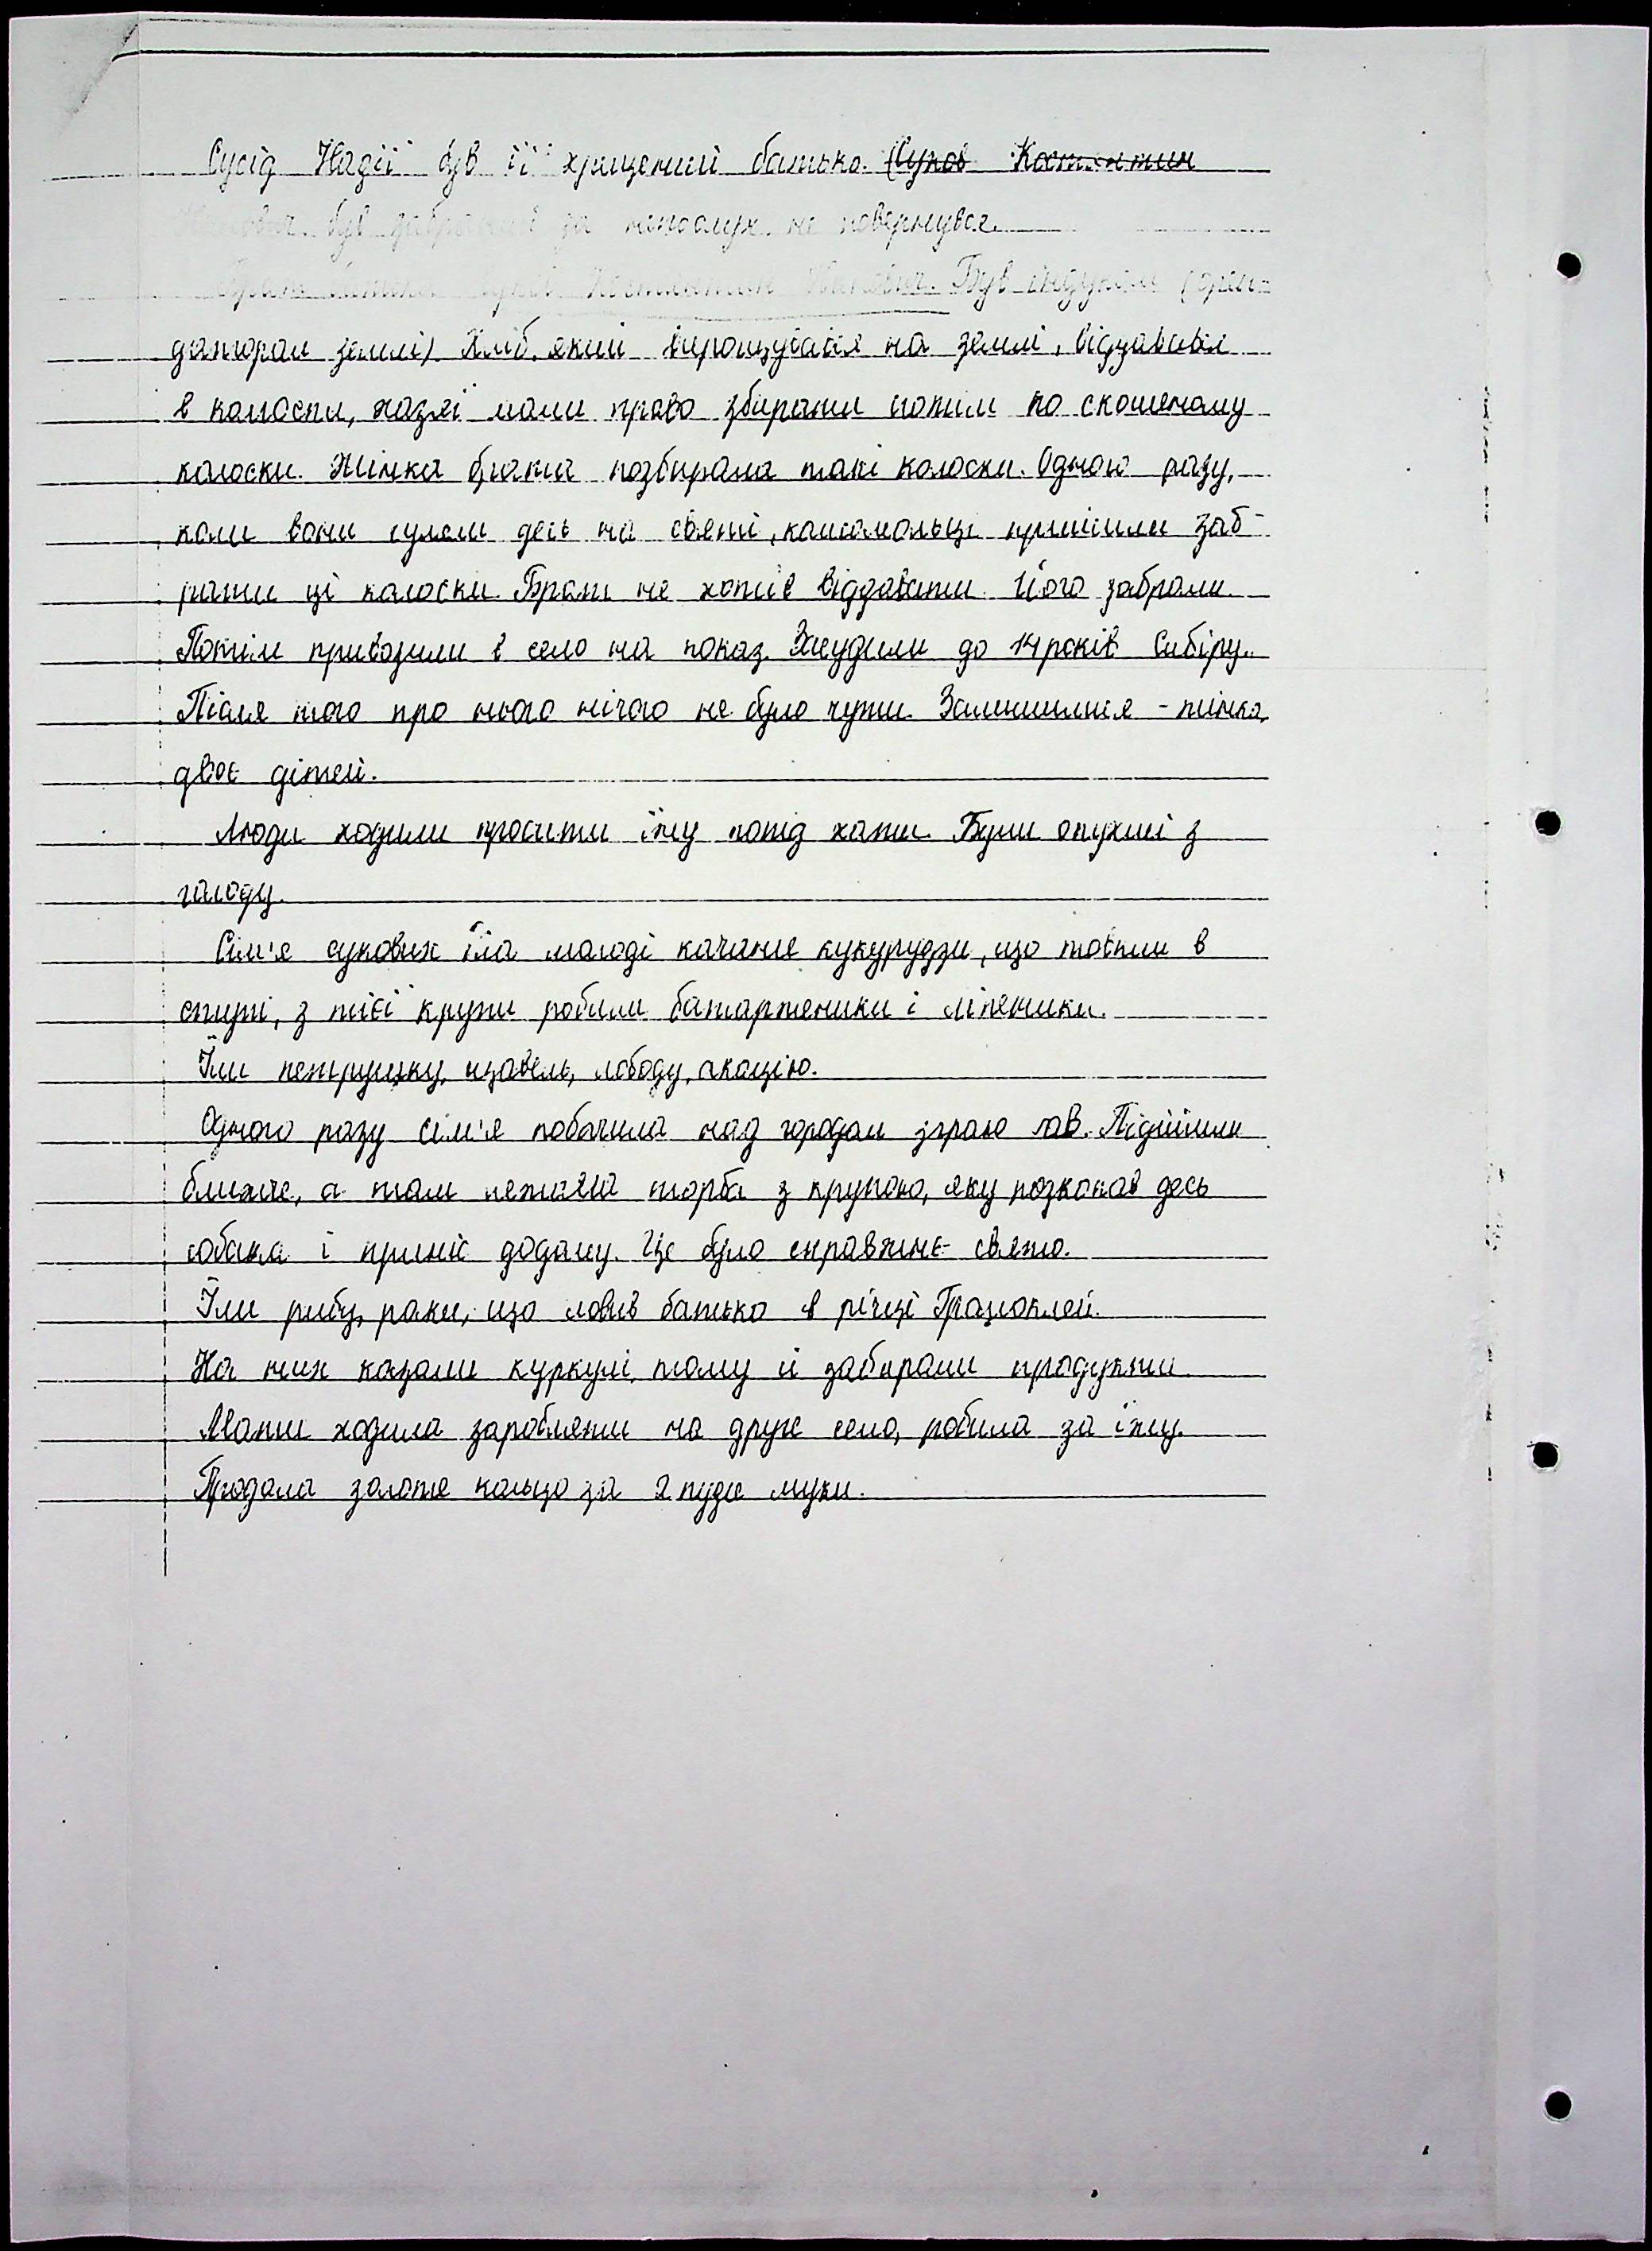 Сусід Надії був її хрищений батько. (Суков Костянтин
був за непослух не повернувся.
батька Суков Костянтин Був індусом (орен-
датором землі). Хліб, який вирощувався на землі, віддавався
в колгоспи, хазяї мали право збирати потим по скошеному
колоски. Жінка брата позбирала такі колоски. Одного разу,
коли вони гуляли десь на святі, комсомольці прийшли заб-
рати ці колоски. Брат не хотів віддавати. Його забрали.
Потім привозили в село на показ. Засудили до 14 років Сибіру.
Після того про нього нічого не було чути. Залишилися - жінка,
двоє дітей.
Люди ходили просити їжу попід хати. Були опухші з
голоду.
Сім'я сукових їла молоді качани кукурудзи, що товкли в
ступі, з тієї крупи робили баторженики і ліпеники.
Їли петрушку, щавель, лободу, акацію.
Одного разу сім'я побачила над городом зграю гав. Підійшли
ближче, а там лежала торба з крупою, яку розкопав десь
собака і приніс додому. Це було справжнє свято.
Їли рибу, раки, що ловив батько в річці Громоклей.
На них казали куркулі, тому й забирали продукти.
Мати ходила заробляти на друге село, робила за їжу.
Продала золоте кольцо за 2 пуди муки.